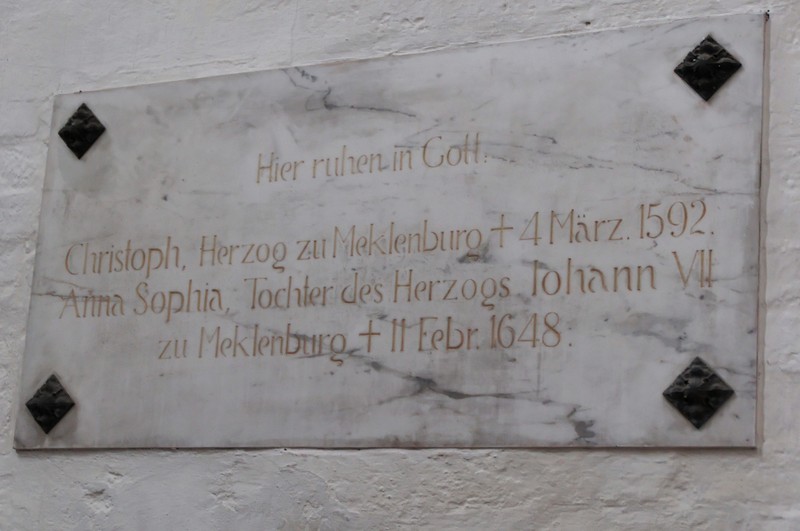 Hier ruhen in Gott.
Christoph, Herzog zu Meklenburg † 4 März. 1592.
Anna Sophia, Tochter des Herzogs Iohann VII
zu Meklenburg † 11 Febr. 1648.